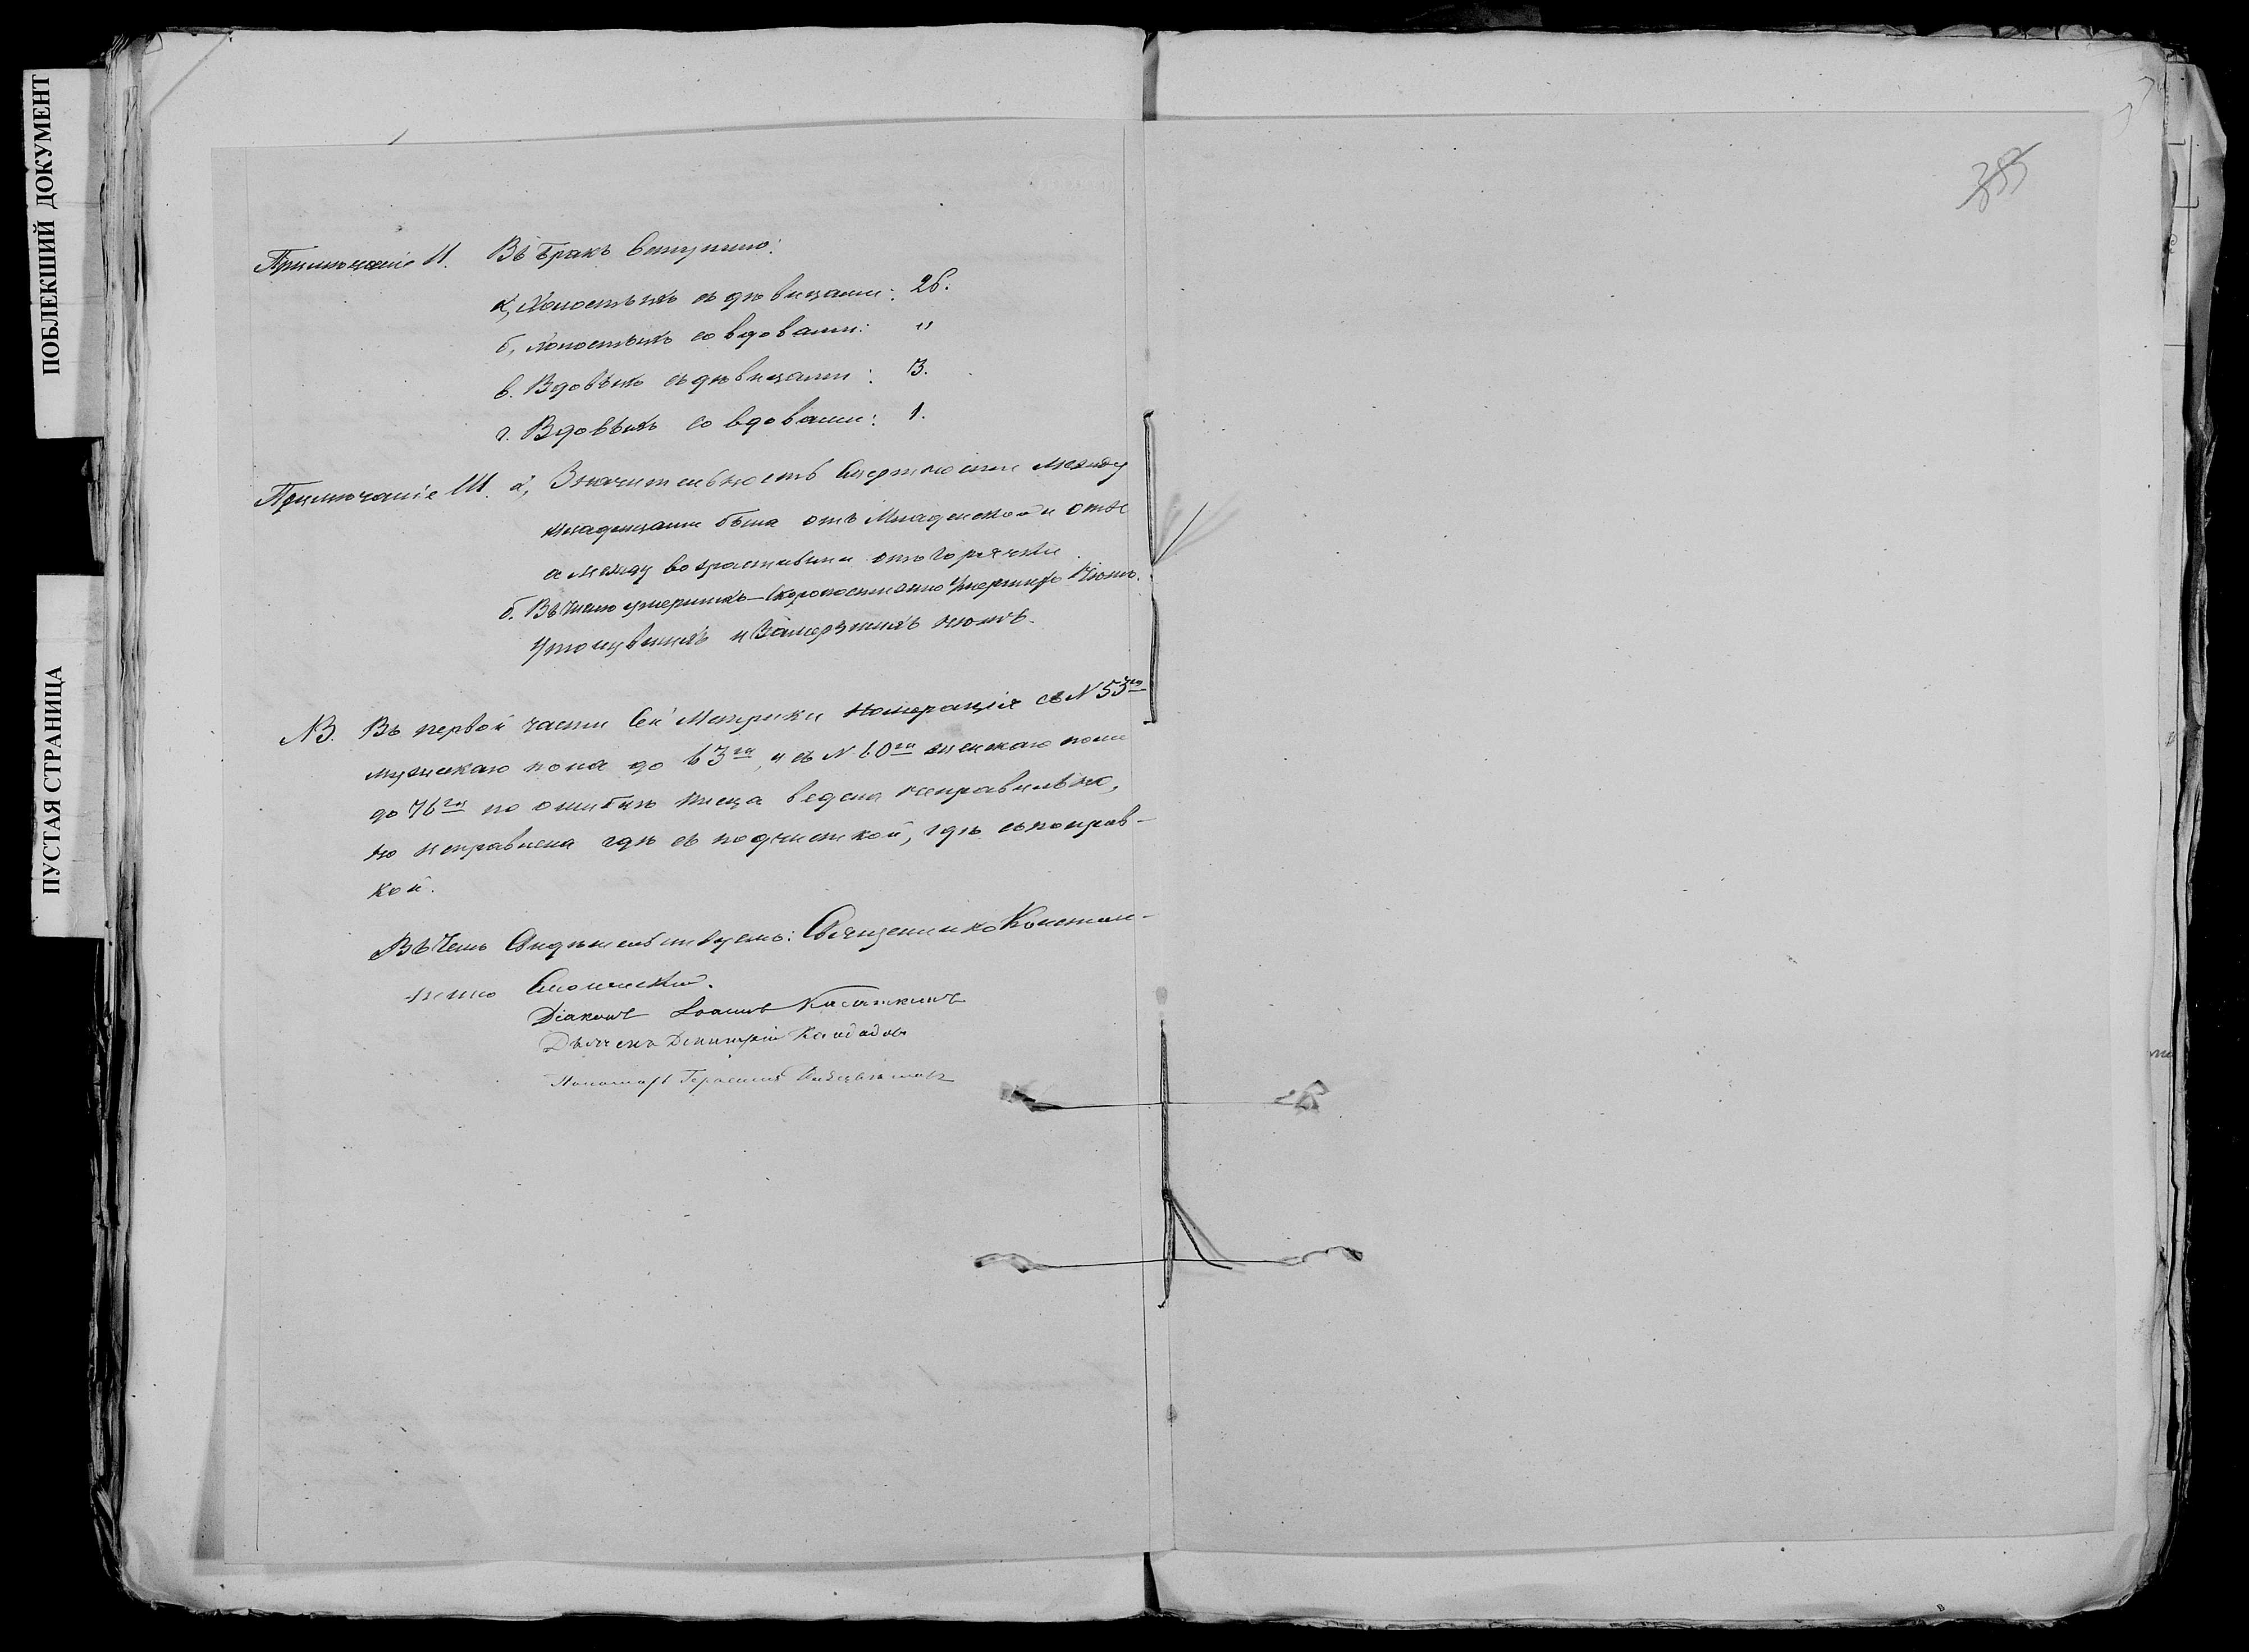 ПОБЛЕКШИЙ ДОКУМЕНТ
ПУСТАЯ СТРАНИЦА
Примѣчаніе II. Въ бракъ вступило:
а, Холостыхъ съ дѣвицами: 26.
б, Холостыхъ со вдовами: "
в. Вдовыхъ съ дѣвицами: 3.
г. Вдовыхъ со вдовами: 1.
Примѣчаніе III. а, Значительность смертности между
младенцами была отъ младенской и
а между возрастными отъ горячки
б. Въ числѣ умершихъ – скоропостижно умершихъ
утонувшихъ и замерзшихъ нѣтъ.
NB. Въ первой части сей Метрики номерація съ N 53го
мужескаго пола до 63го, и съ N 60го женскаго пола
до 76го по ошибкѣ писца ведена неправильно,
но исправлена гдѣ съ подчисткой, гдѣ съ поправ-
кой.
Въ чемъ свидѣтельствуемъ: Священникъ Констан-
тинъ
Діаконъ Іоаннъ Касаткинъ
Дьячекъ Димитрій
Пономарь Герасимъ
383